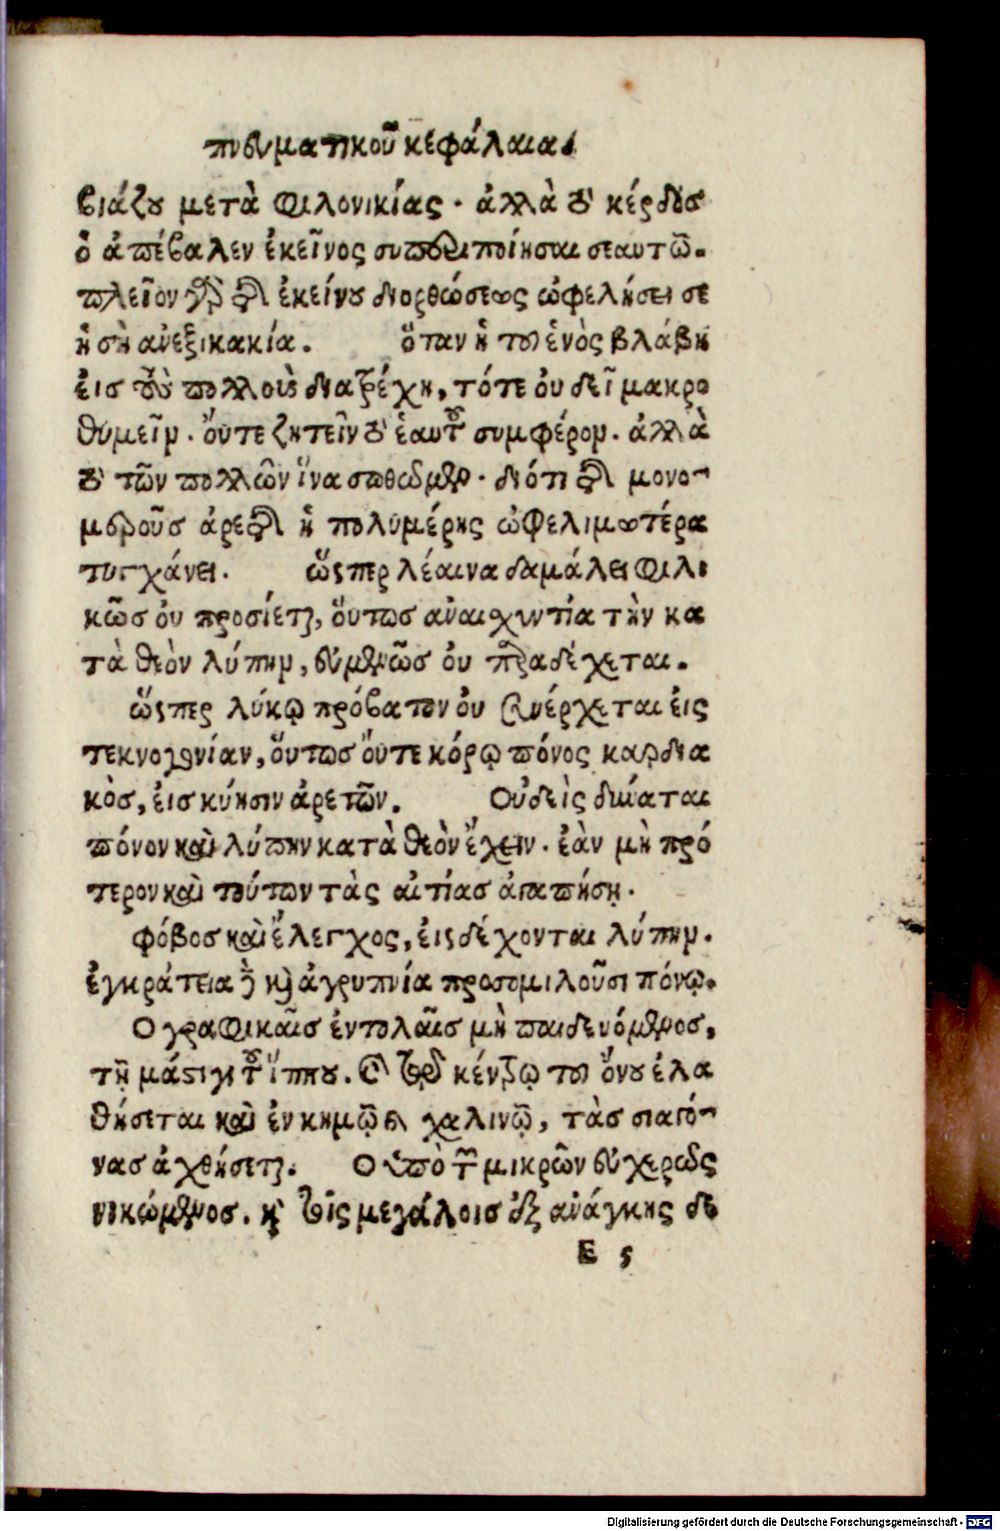 πνευματικοῦ κεφάλαια.
βιάζου μετὰ φιλονικίας. ἀλλὰ τὸ κέρδος
ὃ ἀπέβαλεν ἐκεῖνος συμπεριποίησαι σεαυτῷ.
πλεῖον γὰρ τῆς ἐκείνου διορθώσεως ὠφελήσει σε
ἡ σὴ ἀνεξικακία. ὅταν ἡ του ἑνὸς βλάβη
εἰς τοὺς πολλοὺς διατρέχη, τότε οὐ δεῖ μακρο
θυμεῖν. οὔτε ζητεῖν τὸ ἑαυτοῦ συμφέρον. ἀλλὰ
τὸ τῶν πολλῶν ἵνα σωθῶμεν. διότι τῆς μονο-
μεροῦς ἀρετῆς ἡ πολυμέρης ὠφελιμωτέρα
τυγχάνει. ὥσπερ λέαινα δαμάλει φιλι
κῶς οὐ προσίεται, οὕτως ἀναισχυντία τὴν κα
τὰ θεὸν λύπην, εὐμενῶς οὐ παραδέχεται.
ὥσπερ λύκῳ πρόβατον οὐ συνέρχεται εἰς
τεκνογονίαν, οὕτως οὔτε κόρῳ πόνος καρδια
κὸς, εἰς κύησιν ἀρετῶν. Οὐδεὶς δύναται
πόνον καὶ λύπην κατὰ θεὸν ἔχειν. ἐὰν μὴ πρό
τερον καὶ τούτων τὰς αἰτίας ἀγαπήσῃ.
φόβος καὶ ἔλεγχος, εἰσδέχονται λύπην.
ἐγκράτεια δὲ καὶ ἀγρυπνία προσομιλοῦσι πόνῳ.
Ο γραφικαῖς ἐντολαῖς μὴ παιδευόμενος,
τῇ μάστιγι τοῦ ἵππου. καὶ τῷ κέντρῳ του ὄνου ἐλα
θήσεται καὶ ἐν κημῷ καὶ χαλινῷ, τὰς σιαγό-
νας ἀχθήσεται. Ο ὑπὸ τῶν μικρῶν εὐχερῶς
νικώμενος. καὶ τοῖς μεγάλοις ἐξ ἀνάγκης δε
E 5
Digitalisierung gefördert durch die Deutsche Forschungsgemeinschaft - DFG